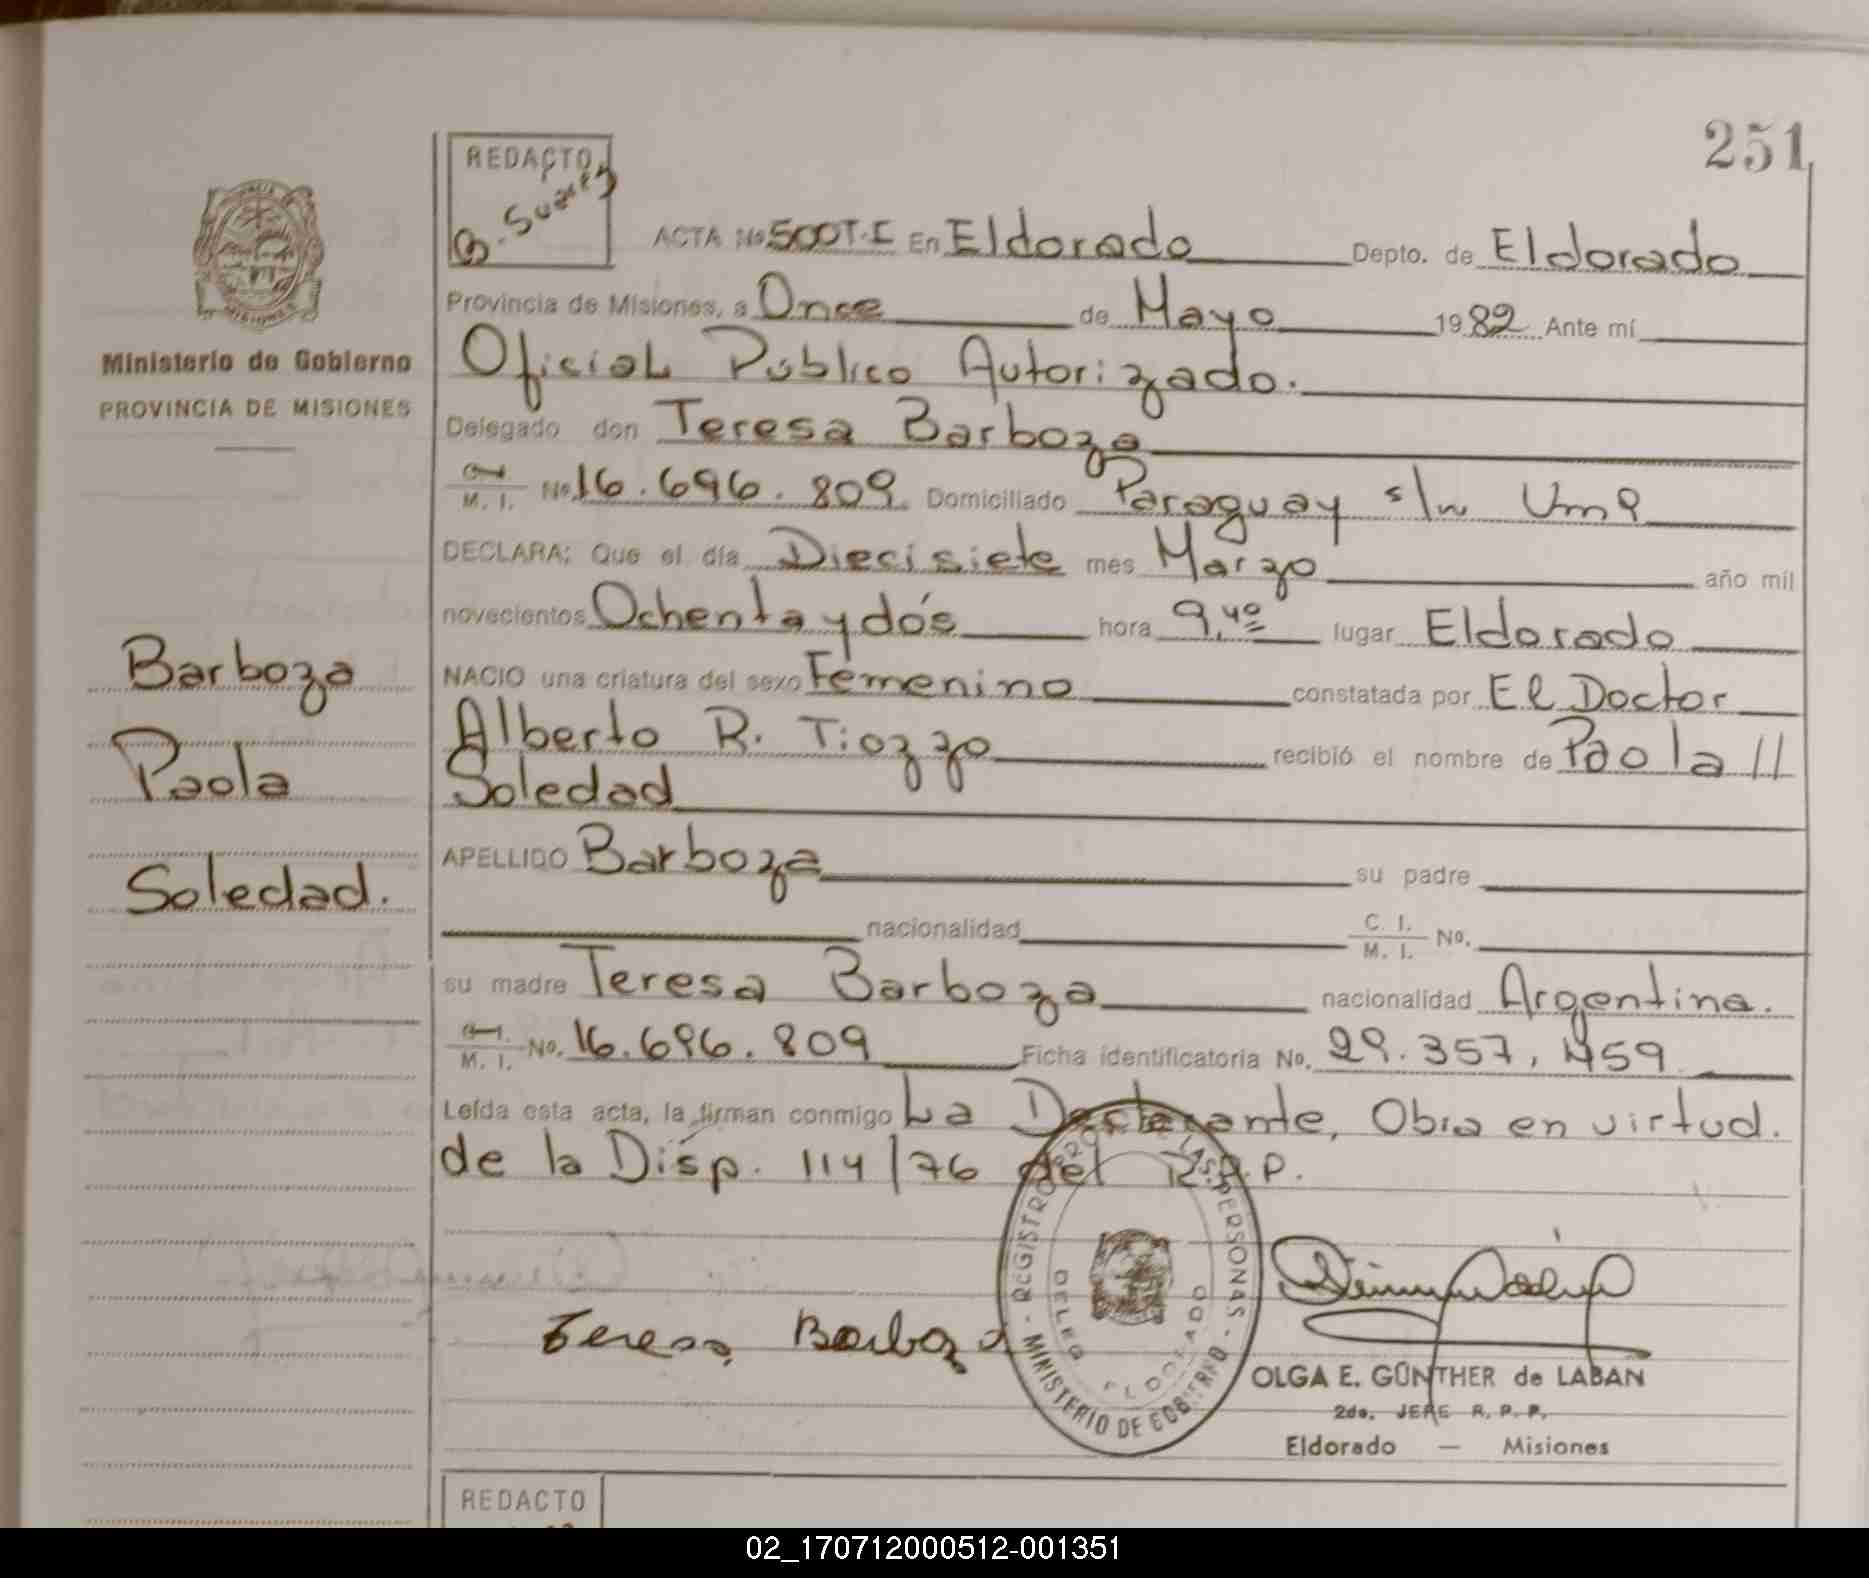 251
REDACTO
B. Suarez
ACTA No 500T-I En Eldorado Depto. de Eldorado
Provincia de Misiones, a Once de Mayo 1982 Ante mí
Ministerio de Gobierno
PROVINCIA DE MISIONES
Oficial Publico Autorizado.
Delegado don Teresa Barboza
C. I. / M. I. No. 16.696.809. Domiciliado Paraguay s/n
DECLARA: Que el día Diecisiete mes Marzo año mil
novecientos Ochenta y dós hora 9,40 lugar Eldorado
NACIO una criatura del sexo Femenino constatada por El Doctor
Alberto R. Tiozzo recibió el nombre de Paola //
Soledad
Barboza
Paola
Soledad.
APELLIDO Barboza su padre
nacionalidad C. I. / M. I. No.
su madre Teresa Barboza nacionalidad Argentina.
C. I. / M. I. No. 16.696.809 Ficha identificatoria No. 29.357,459
Leída esta acta, la firman conmigo La Declarante, Obra en virtud.
de la Disp. 114/76 del R.P.P.
Teresa Barboza
REGISTRO PERSONAS - MINISTERIO DE GOBIERNO -
DELEG ELDORADO
OLGA E. GÜNTHER de LABAN
2do. JEFE R. P. P.
Eldorado — Misiones
REDACTO
02_170712000512-001351